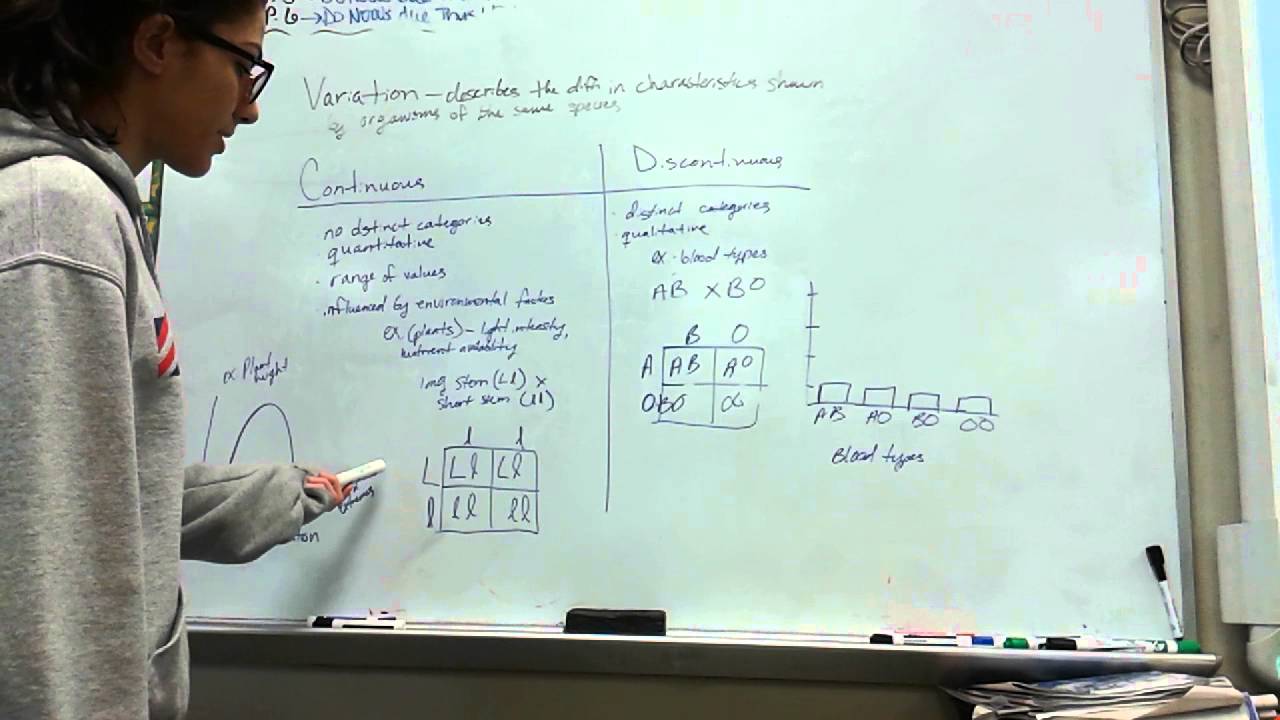 P. 6 → DO NOUS
Variation – describes the diff. in characteristics shown
by organisms of the same species
Continuous
no distinct categories
· quantitative
· range of values
· influenced by environmental factors
ex (plants) – light intensity,
nutrient availability
long stem (Ll) x
short stem (ll)
l l
L Ll Ll
l ll ll
Plant
height
extremes
Discontinuous
· distinct categories
· qualitative
ex. blood types
AB X BO
B O
A AB AO
O BO OO
AB AO BO OO
Blood types